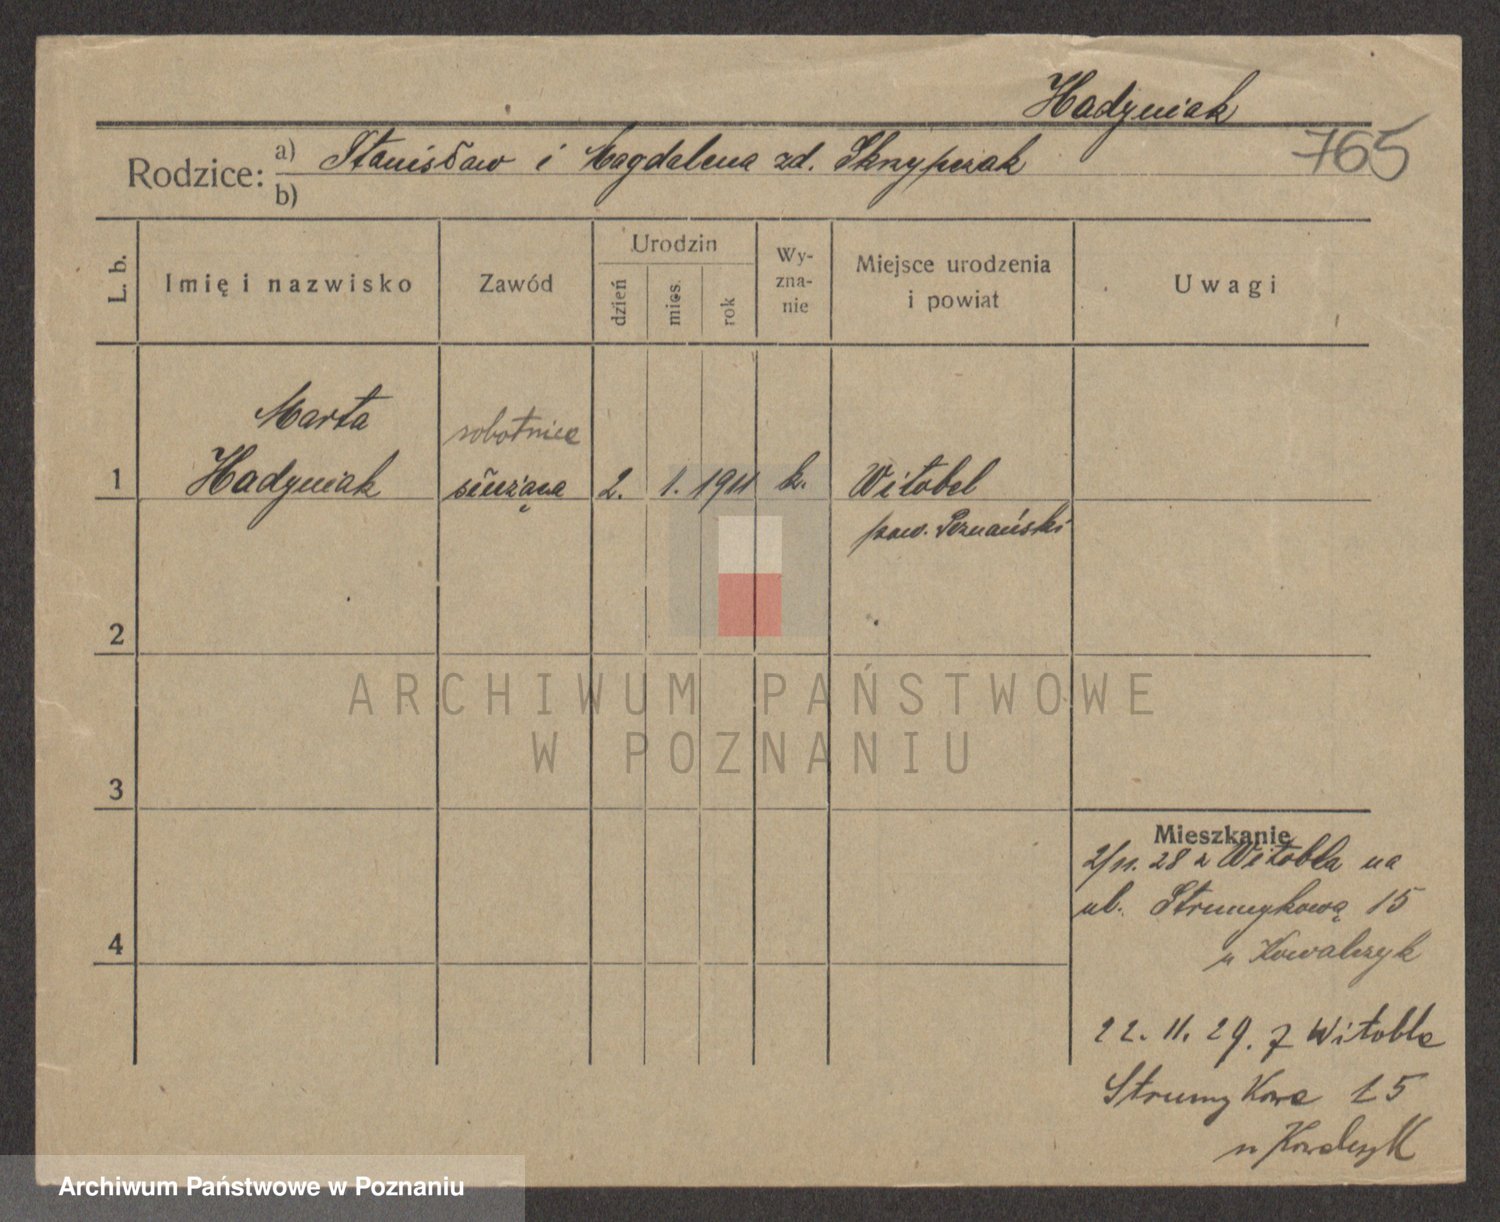 Hadyniak
765
Rodzice: a) Stanisław i Magdalena zd. Skrzypczak
b)
L. b.
Imię i nazwisko
Zawód
Urodzin
dzień
mies.
rok
Wy-
zna-
nie
Miejsce urodzenia
i powiat
Uwagi
Marta
robotnica
1 Hadyniak służąca 2. 1. 1911 k. Witobel
pow. Poznański
2
ARCHIWUM PAŃSTWOWE
W POZNANIU
3
Mieszkanie
2/11. 28 z Witobla na
ul. Strumykową 15
4
u Kowalczyk
22. 11. 29. z Witobla
Strumykowa 15
u Kowalczyk
Archiwum Państwowe w Poznaniu